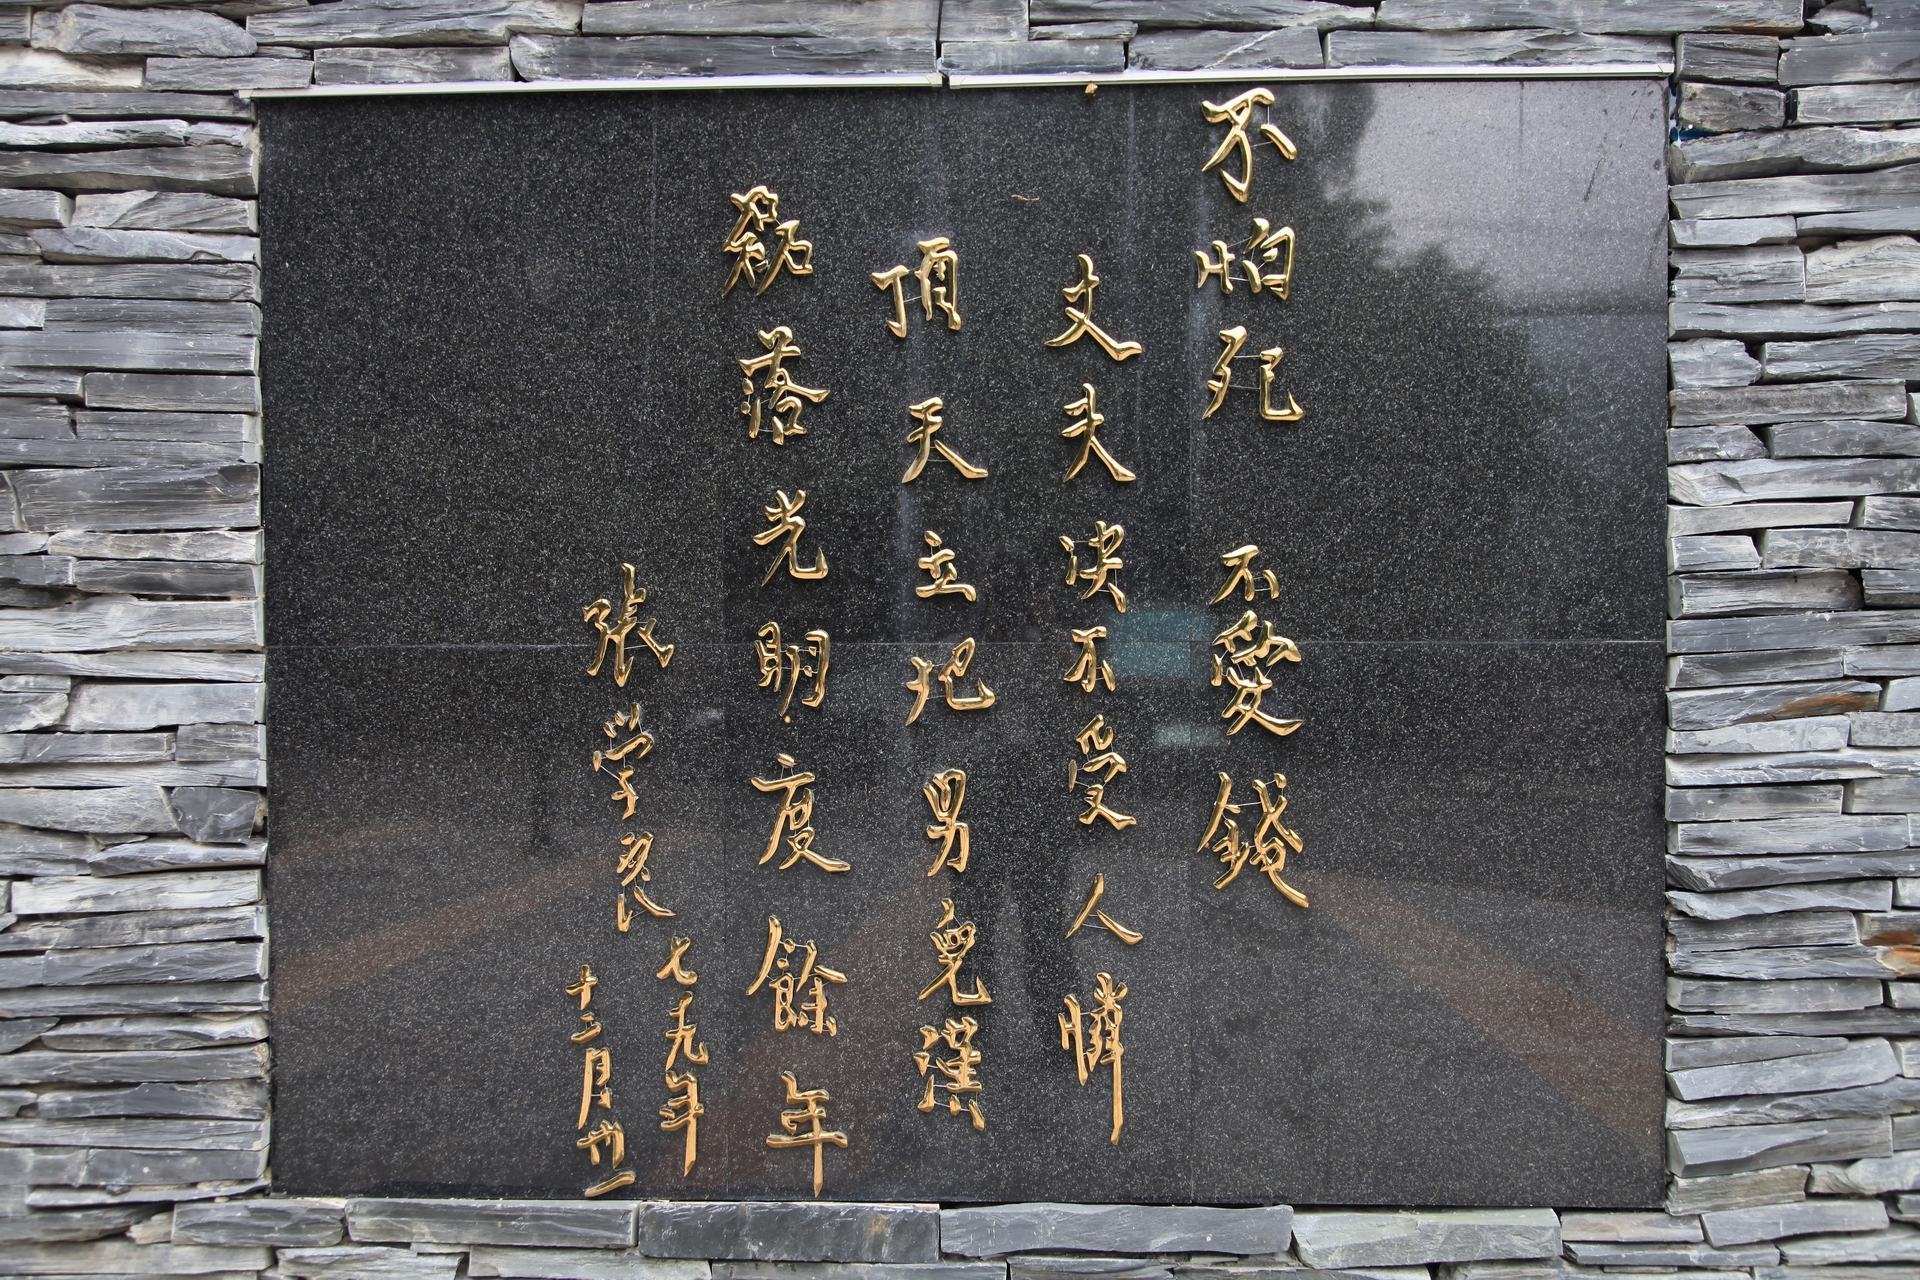 不怕死 不愛錢
丈夫决不受人憐
頂天立地男兒漢
磊落光明度餘年
張学良
七九年
十二月卅一